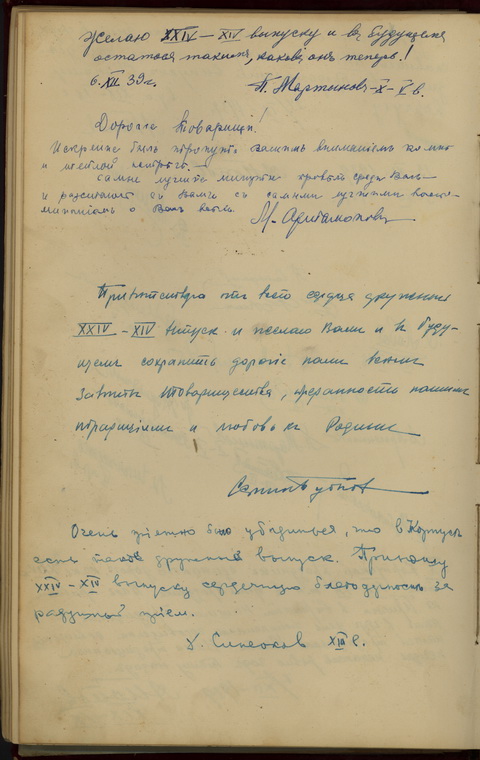 Желаю XXIV – XIV выпуску и въ будущемъ
остаться такимъ, каковъ онъ теперь!
6. XII 39 г. П. Мартыновъ – X – V в.
Дорогіе Товарищи!
Искренне былъ тронутъ вашимъ вниманіемъ ко мнѣ
и
самыя лучшія минуты провелъ среди Васъ
и съ Вами съ самыми лучшими воспо-
минаніями о Васъ
М.
Привѣтствую отъ всего сердца дружный
XXIV – XIV выпускъ и желаю Вамъ и въ буду-
щемъ сохранить дорогіе намъ всѣмъ
завѣты товарищества, преданность нашимъ
традиціямъ и любовь къ Родинѣ

Очень пріятно было убѣдиться, что въ Корпусѣ
есть такой дружный выпускъ. Приношу
XXIV – XIV выпуску сердечную благодарность за
радушный пріем.
Синеоков XIII в.